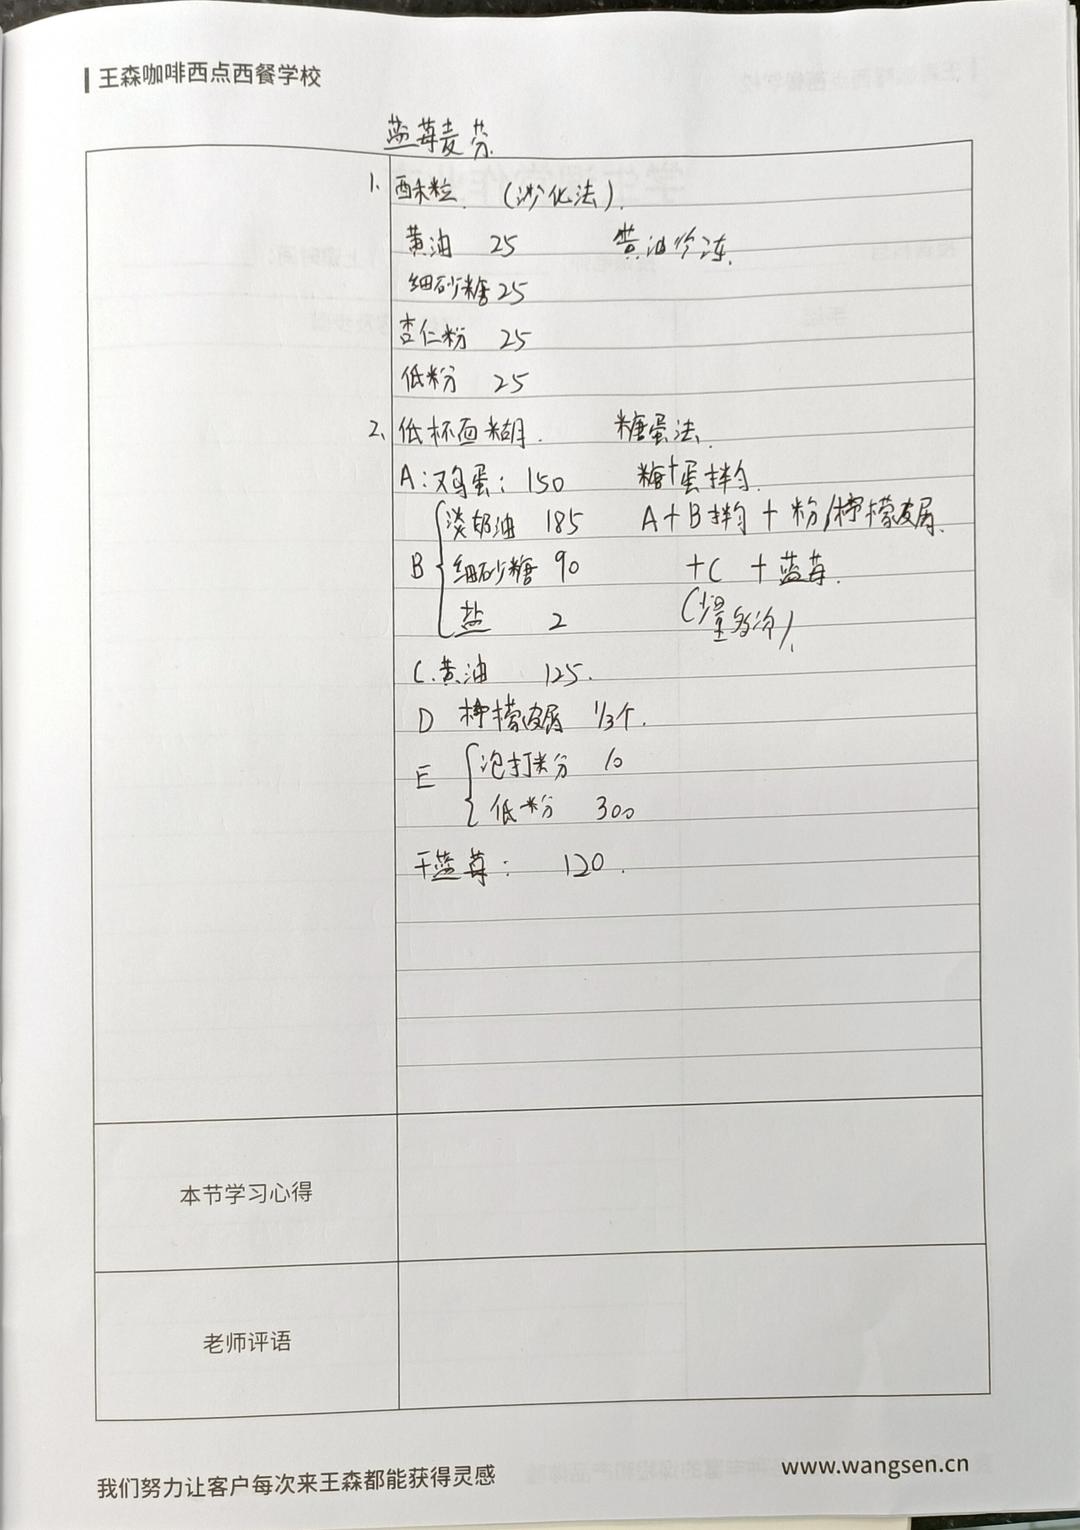 王森咖啡西点西餐学校
蓝莓麦芬
1. 酥粒. (沙化法).
黄油 25 黄油冷冻.
细砂糖 25
杏仁粉 25
低粉 25
2. 低杯面糊. 糖蛋法.
A:鸡蛋: 150 糖+蛋拌匀.
B { 淡奶油 185 A+B拌匀 + 粉/柠檬皮屑.
细砂糖 90 +C +蓝莓.
盐 2 (少量多次).
C.黄油 125.
D 柠檬皮屑 1/3个.
E { 泡打粉 10
低粉 300
干蓝莓: 120.
本节学习心得
老师评语
我们努力让客户每次来王森都能获得灵感
www.wangsen.cn